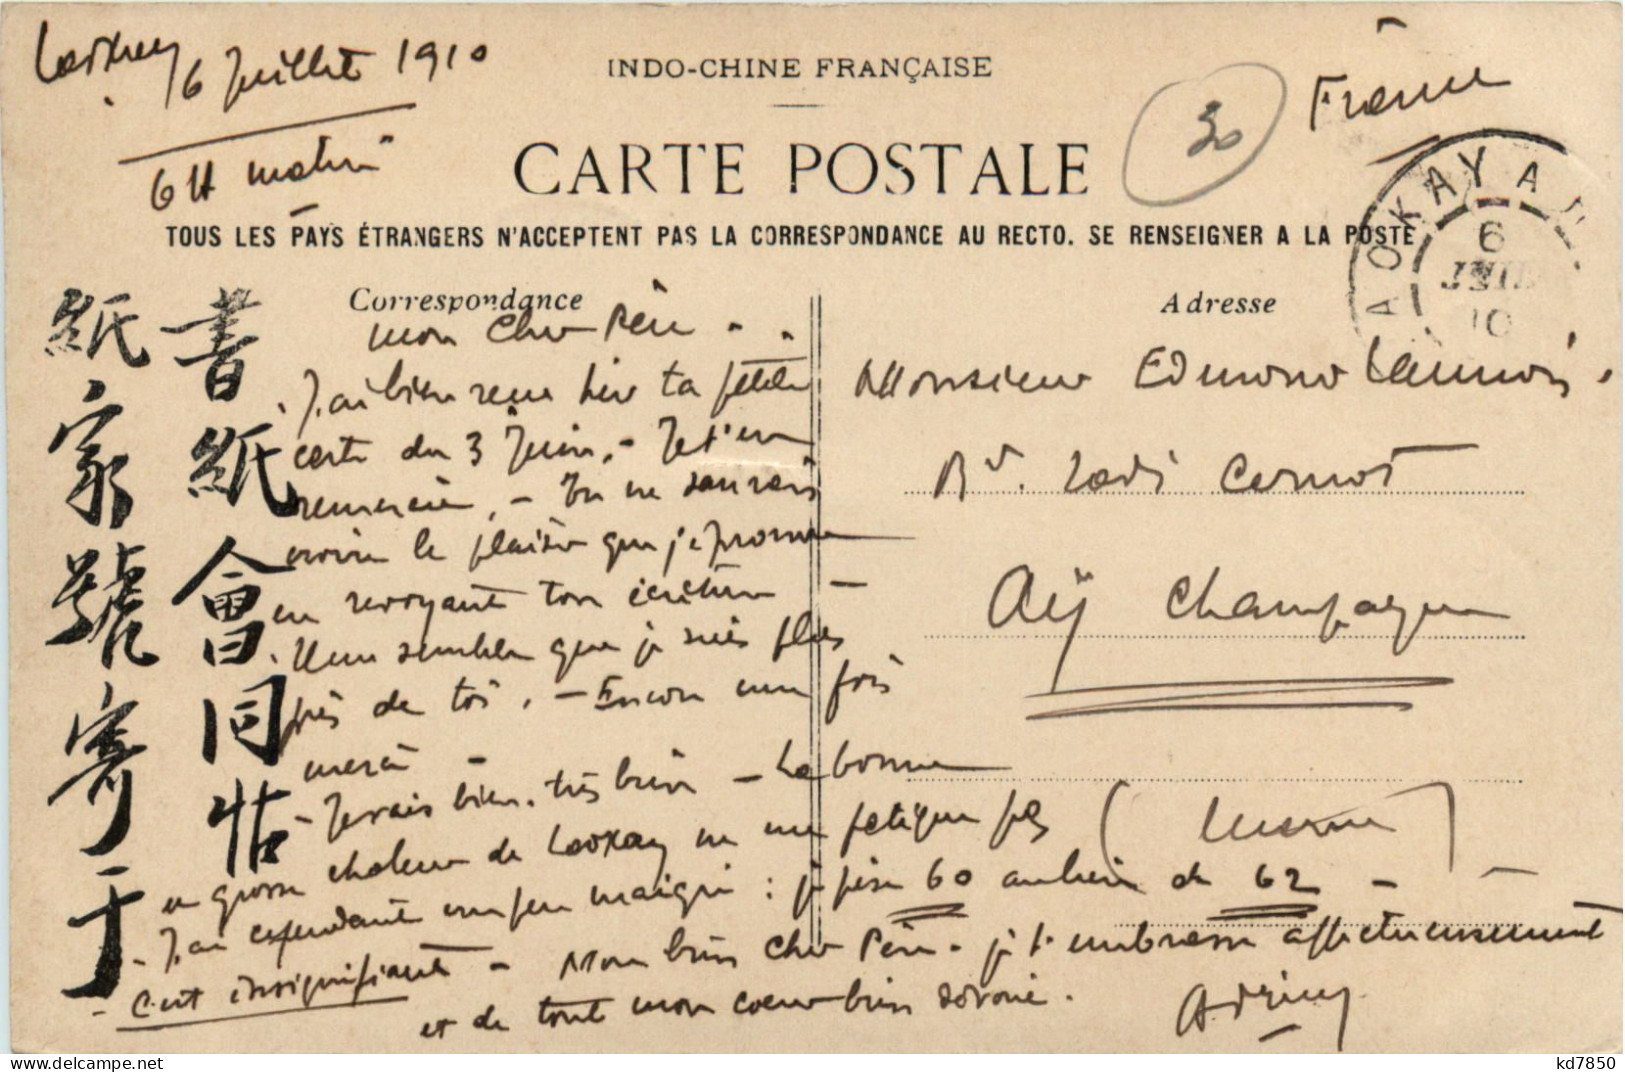 Laokay 6 Juillet 1910
6 H matin
INDO-CHINE FRANÇAISE
CARTE POSTALE
TOUS LES PAYS ÉTRANGERS N'ACCEPTENT PAS LA CORRESPONDANCE AU RECTO. SE RENSEIGNER A LA POSTE
30
France
LAOKAY
6
JUIL
10
書紙會同帖
紙家號寄于
Correspondance
Mon Cher Père - . .
. J'ai bien reçu hier ta petite
carte du 3 Juin. - Je t'en
remercie. - Tu ne saurais
croire le plaisir que j'éprouve
en revoyant ton écriture -
. Il me semble que je suis plus
près de toi. - Encore une fois
merci -
- Je vais bien, très bien - La bonne
et grosse chaleur de Laokay ne me fatigue pas
- J'ai cependant un peu maigri : je pèse 60 au lieu de 62 -
- C'est insignifiant - Mon bien cher Père - je t'embrasse affectueusement
et de tout mon coeur bien dévoué.
Adresse
Monsieur Edmond
Bd. Sadi Carnot
Aÿ Champagne
( Marne )
kd7850